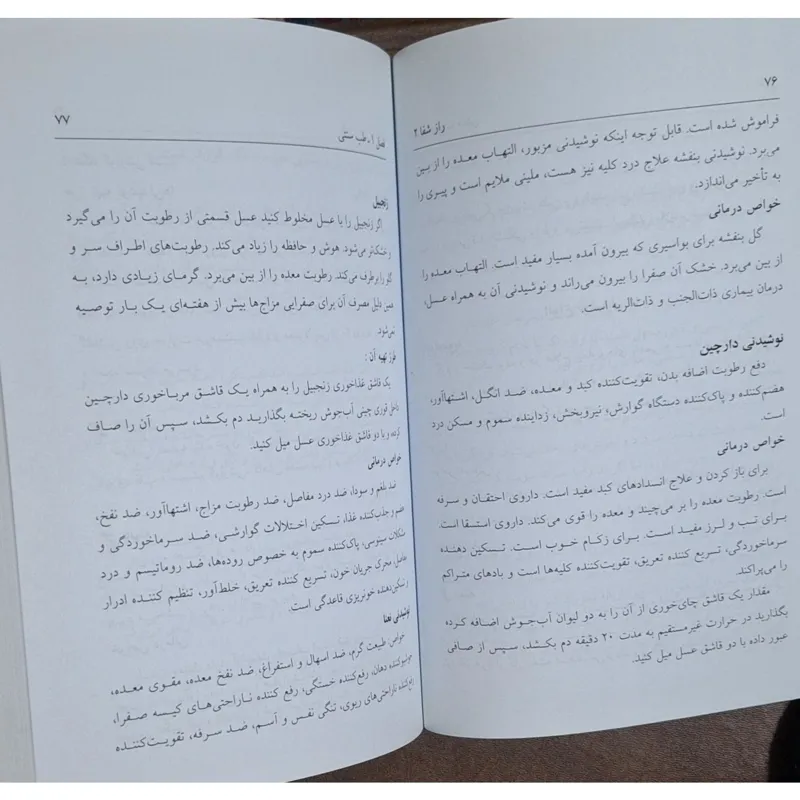 ۷۶
راز شفا ۲
فراموش شده است. قابل توجه اینکه نوشیدنی مزبور، التهاب معده را از بین
می‌برد. نوشیدنی بنفشه علاج درد کلیه نیز هست، ملینی ملایم است و پیری را
به تأخیر می‌اندازد.
خواص درمانی
گل بنفشه برای بواسیری که بیرون آمده بسیار مفید است. التهاب معده را
از بین می‌برد. خشک آن صفرا را بیرون می‌راند و نوشیدنی آن به همراه عسل،
درمان بیماری ذات‌الجنب و ذات‌الریه است.
نوشیدنی دارچین
دفع رطوبت اضافه بدن، تقویت‌کننده کبد و معده، ضد انگل، اشتهاآور،
هضم‌کننده و پاک‌کننده دستگاه گوارش، نیروبخش، زداینده سموم و مسکن درد
است.
خواص درمانی
برای باز کردن و علاج انسدادهای کبد مفید است. داروی احتقان و سرفه
است. رطوبت معده را بر می‌چیند و معده را قوی می‌کند. داروی استسقا است.
برای تب و لرز مفید است. برای زکام خوب است. تسکین دهنده
سرماخوردگی، تسریع کننده تعریق، تقویت‌کننده کلیه‌ها است و بادهای متراکم
را می‌پراکند.
مقدار یک قاشق چای‌خوری از آن را به دو لیوان آب‌جوش اضافه کرده
بگذارید در حرارت غیرمستقیم به مدت ۲۰ دقیقه دم بکشد، سپس از صافی
عبور داده با دو قاشق عسل میل کنید.
۷۷
فصل ۱ ـ طب سنتی
زنجبیل
اگر زنجبیل را با عسل مخلوط کنید عسل قسمتی از رطوبت آن را می‌گیرد
و خشک‌تر می‌شود. هوش و حافظه را زیاد می‌کند. رطوبت‌های اطراف سر و
گلو را برطرف می‌کند. رطوبت معده را از بین می‌برد. گرمای زیادی دارد، به
همین دلیل مصرف آن برای صفرایی مزاج‌ها بیش از هفته‌ای یک بار توصیه
نمی‌شود.
طرز تهیه آن :
یک قاشق غذاخوری زنجبیل را به همراه یک قاشق مرباخوری دارچین
داخل قوری چینی آب‌جوش ریخته بگذارید دم بکشد، سپس آن را صاف
کرده و با دو قاشق غذاخوری عسل میل کنید.
خواص درمانی
ضد بلغم و سودا، ضد درد مفاصل، ضد رطوبت مزاج، اشتهاآور، ضد نفخ،
هضم و جذب‌کننده غذا، تسکین اختلالات گوارشی، ضد سرماخوردگی و
مشکلات سینوسی، پاک‌کننده سموم به خصوص روده‌ها، ضد روماتیسم و درد
مفاصل، محرک جریان خون، تسریع کننده تعریق، خلط‌آور، تنظیم کننده ادرار
و تسکین‌دهنده خونریزی قاعدگی است.
نوشیدنی نعنا
خواص: طبیعت گرم، ضد اسهال و استفراغ، ضد نفخ معده، مقوی معده،
خوشبوکننده دهان، رفع‌کننده خستگی، رفع کننده ناراحتی‌های کیسه صفرا،
رفع‌کننده ناراحتی‌های ریوی، تنگی نفس و آسم، ضد سرفه، تقویت‌کننده